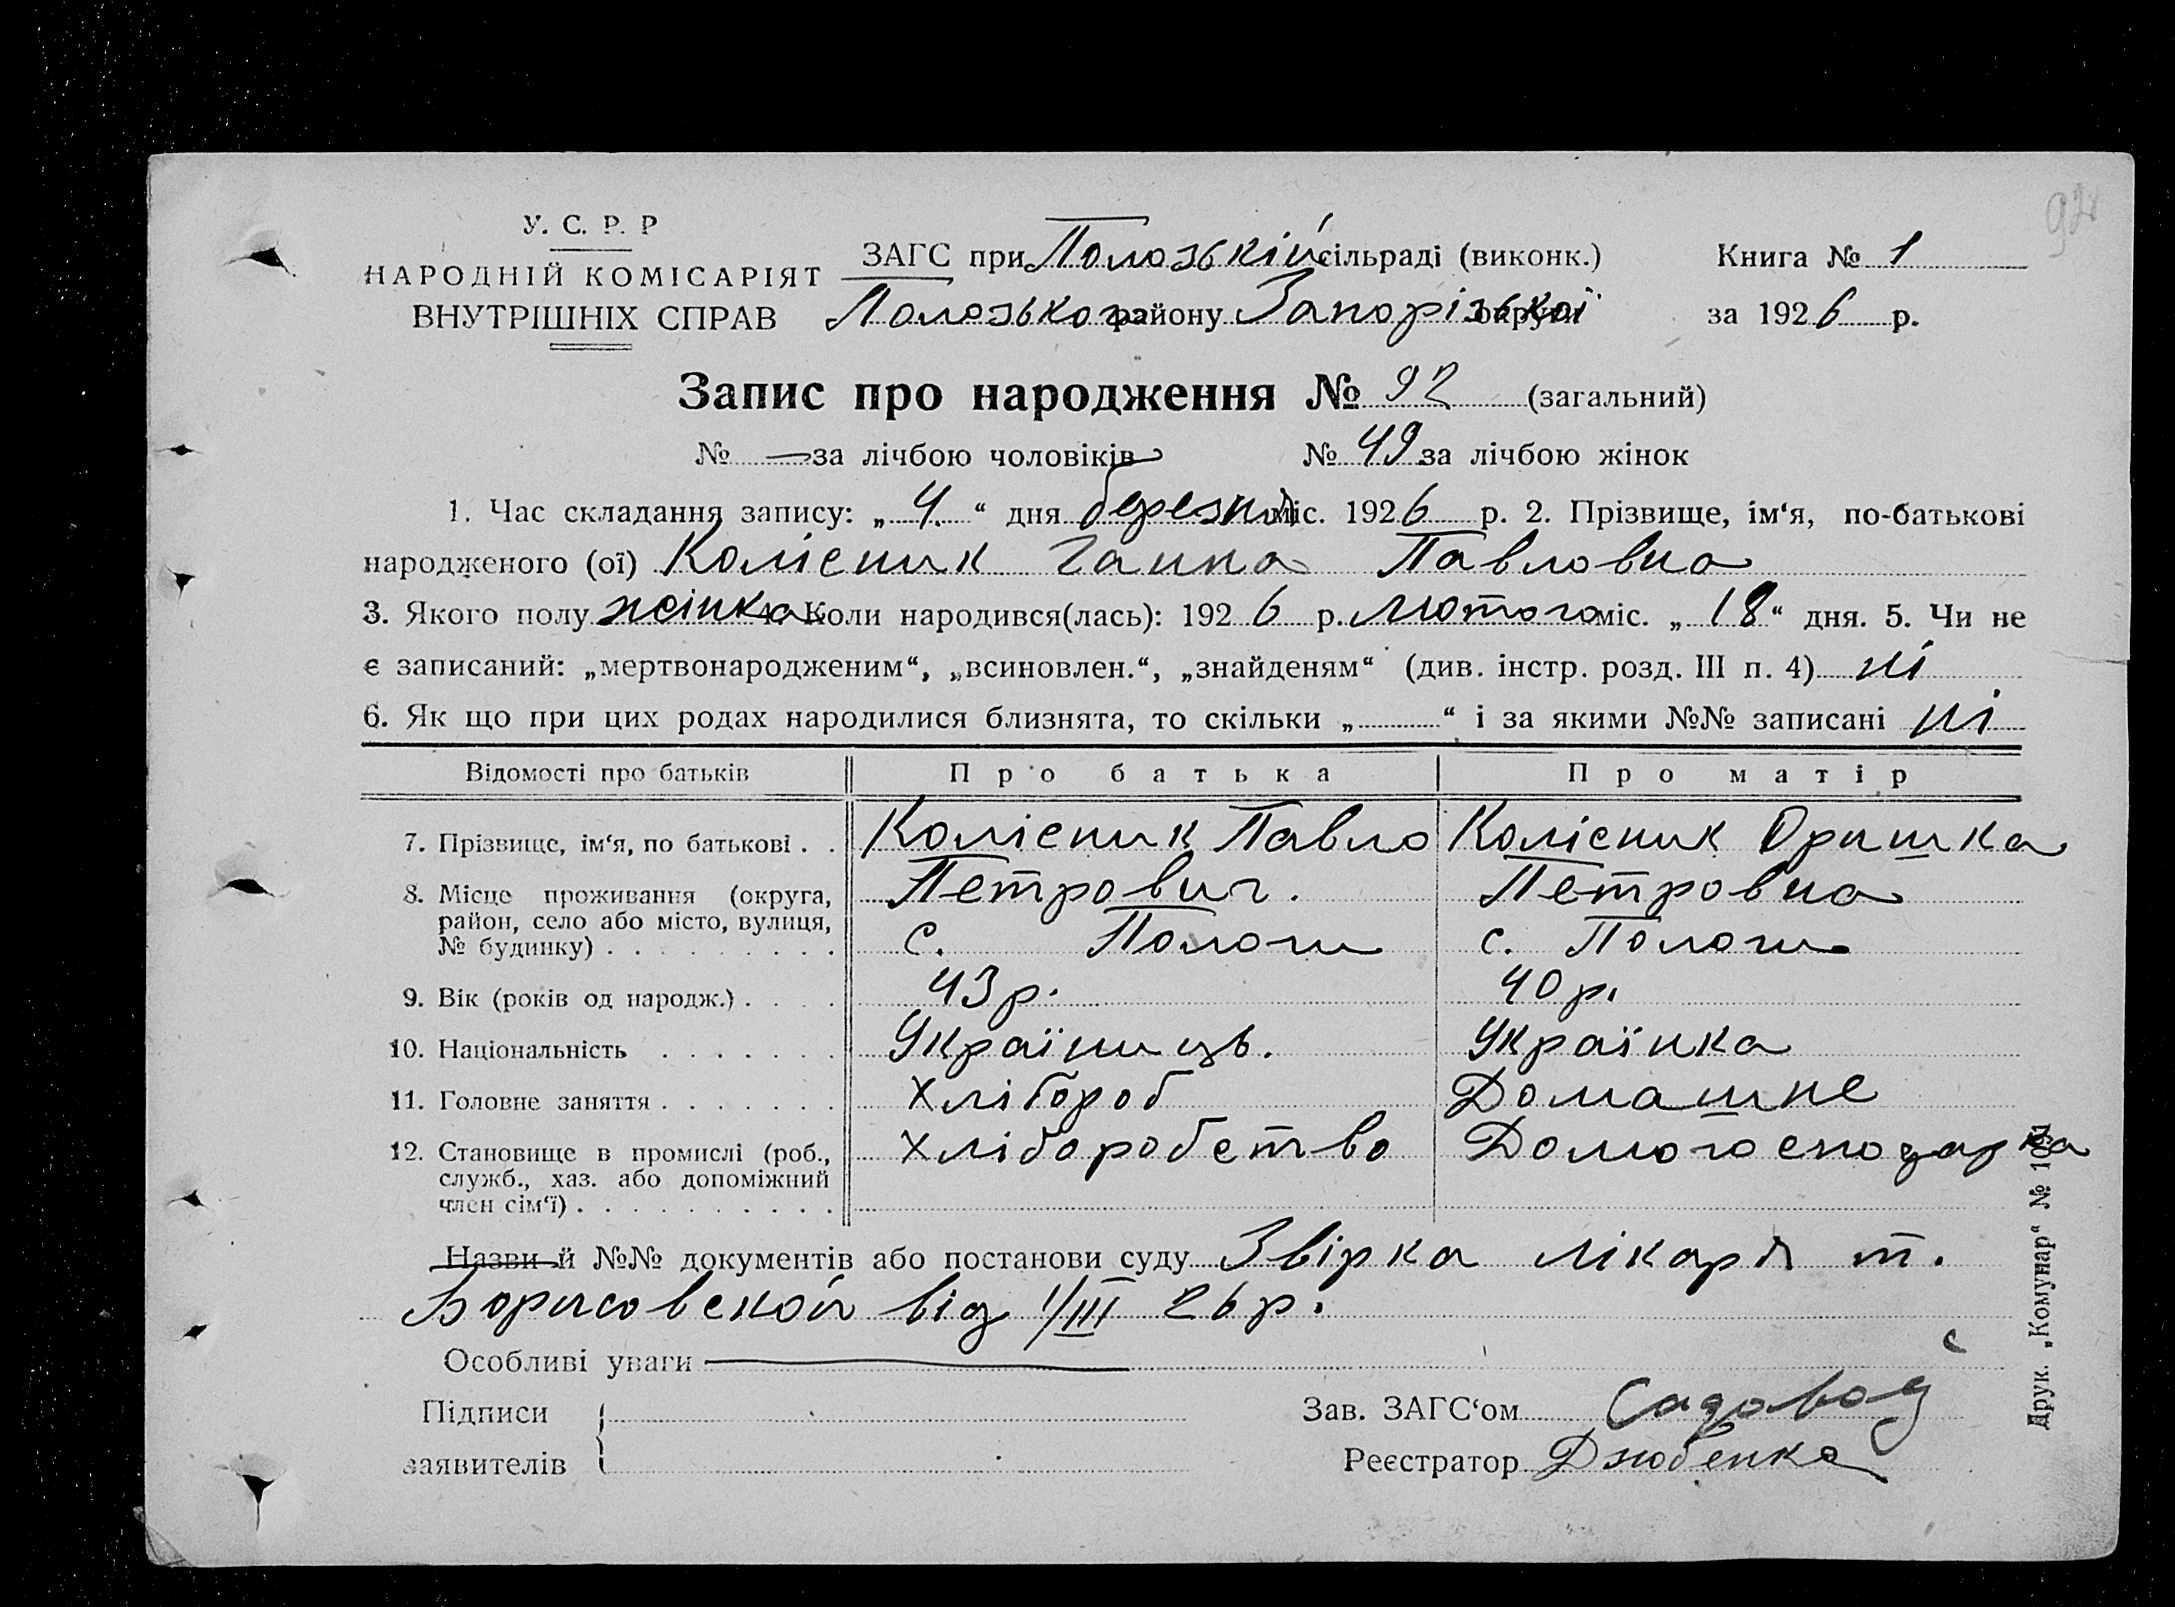 92
У. С. Р. Р
НАРОДНІЙ КОМІСАРІЯТ
ВНУТРІШНІХ СПРАВ
ЗАГС при Полозькій сільраді (виконк.)
Полозького району Запорізької округи
Книга № 1
за 1926 р.
Запис про народження № 92 (загальний)
№ — за лічбою чоловіків № 49 за лічбою жінок
1. Час складання запису: „ 4. “ дня березня міс. 1926 р. 2. Прізвище, ім‘я, по-батькові
народженого (ої) Колісник Ганна Павловна
3. Якого полу жінка 4. Коли народився(лась): 1926 р. Лютого міс. „ 18 “ дня. 5. Чи не
є записаний: „мертвонародженим“, „всиновлен.“, „знайденям“ (див. інстр. розд. III п. 4) ні
6. Як що при цих родах народилися близнята, то скільки „ “ і за якими №№ записані ні
Відомості про батьків Про батька Про матір
7. Прізвище, ім‘я, по батькові . . Колісник Павло Колісник Оришка
Петрович. Петровна
8. Місце проживання (округа,
район, село або місто, вулиця,
№ будинку) . . . . . . . . . с. Пологи с. Пологи
9. Вік (років од народж.) . . . . 43 р. 40 р.
10. Національність . . . . . . . Українець. Українка
11. Головне заняття . . . . . . . Хлібороб Домашне
12. Становище в промислі (роб.,
служб., хаз. або допоміжний
член сім‘ї) . . . . . . . . . . Хліборобство Домогосподарка
Назви й №№ документів або постанови суду Звірка лікаря т.
Борисовской від 1/III 26 р.
Особливі уваги
Підписи
заявителів
Зав. ЗАГС‘ом Садовой
Реєстратор Дзюбенко
Друк. „Комунар“ №